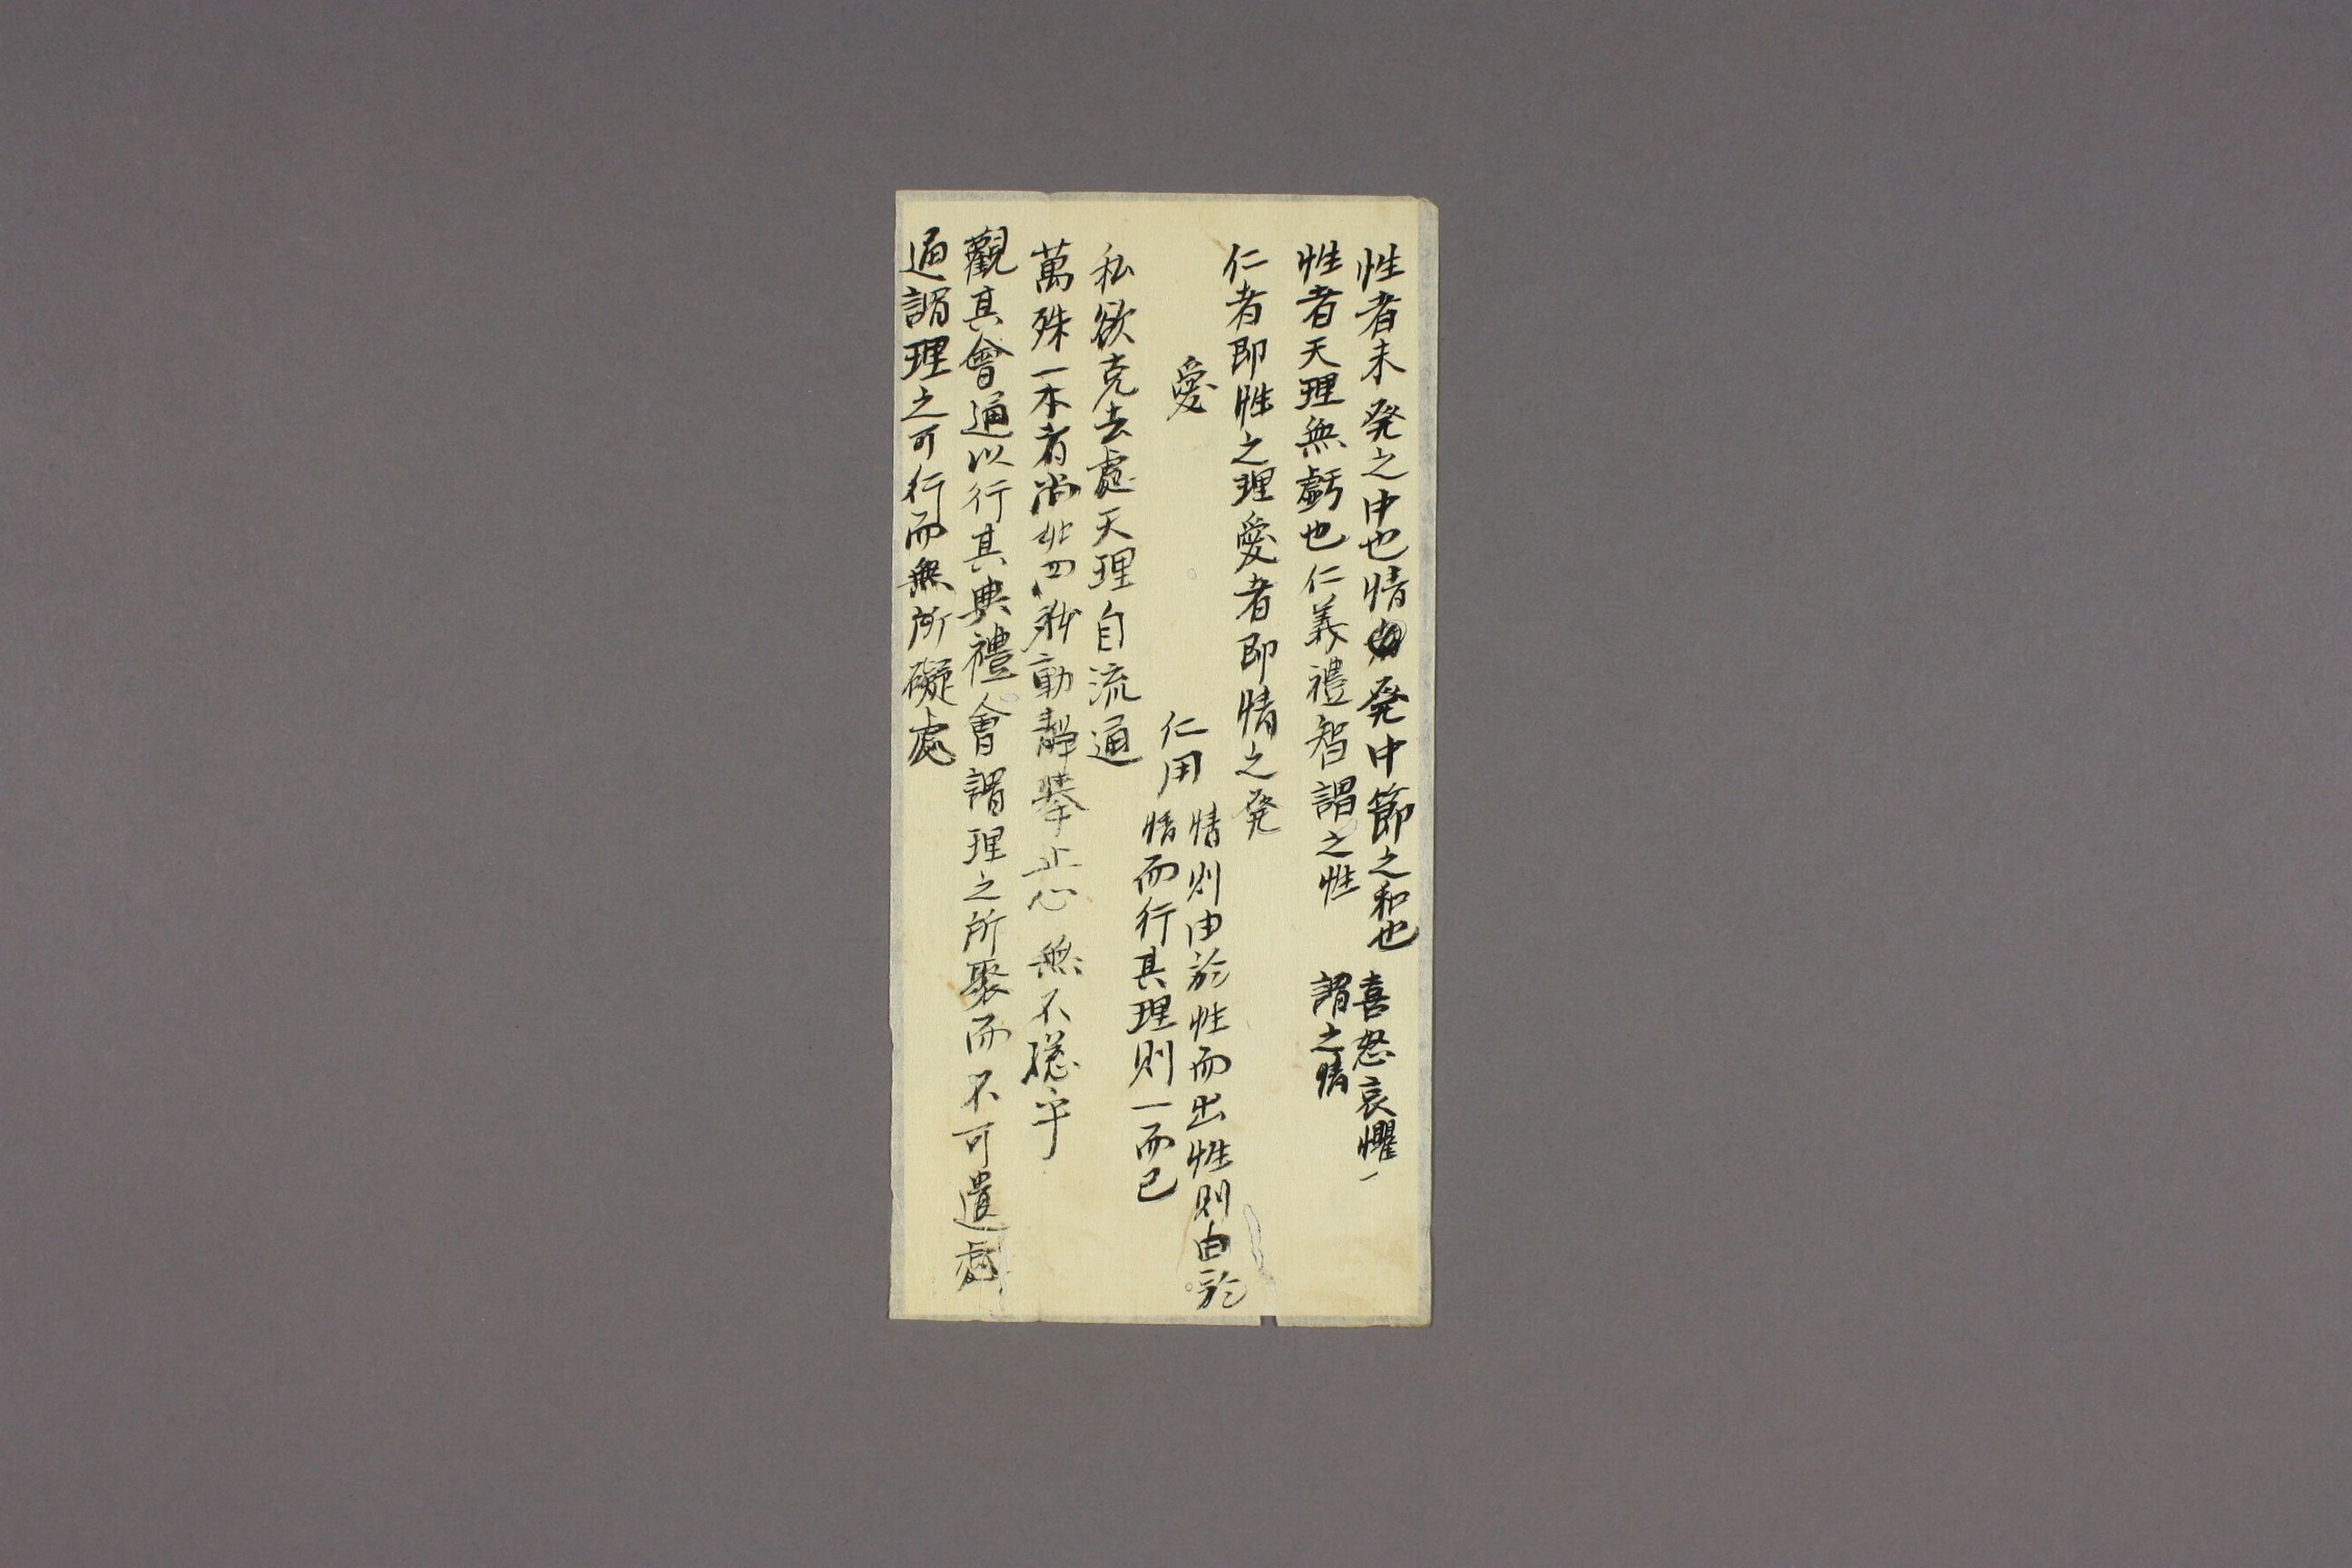 性者未発之中也情発中節之和也 喜怒哀懼
謂之情
性者天理無虧也仁義禮智謂之性
仁者即性之理愛者即情之発
愛 仁用 情則由於性而出性則由於
情而行其理則一而已
私欲克去處天理自流通
萬殊一本者尚非四
動靜擧止心無不
乎
觀其會通以行其典禮會謂理之所聚而不可遺處
通謂理之可行而無所礙處